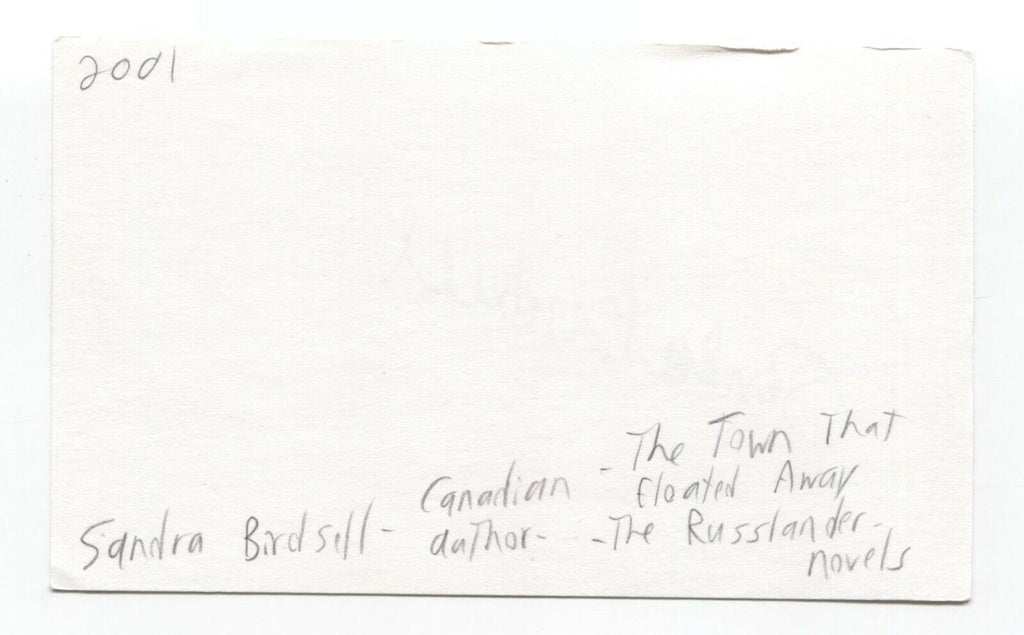 2001
Sandra Birdsell - Canadian author -
- The Town That
Floated Away
- The Russlander -
novels